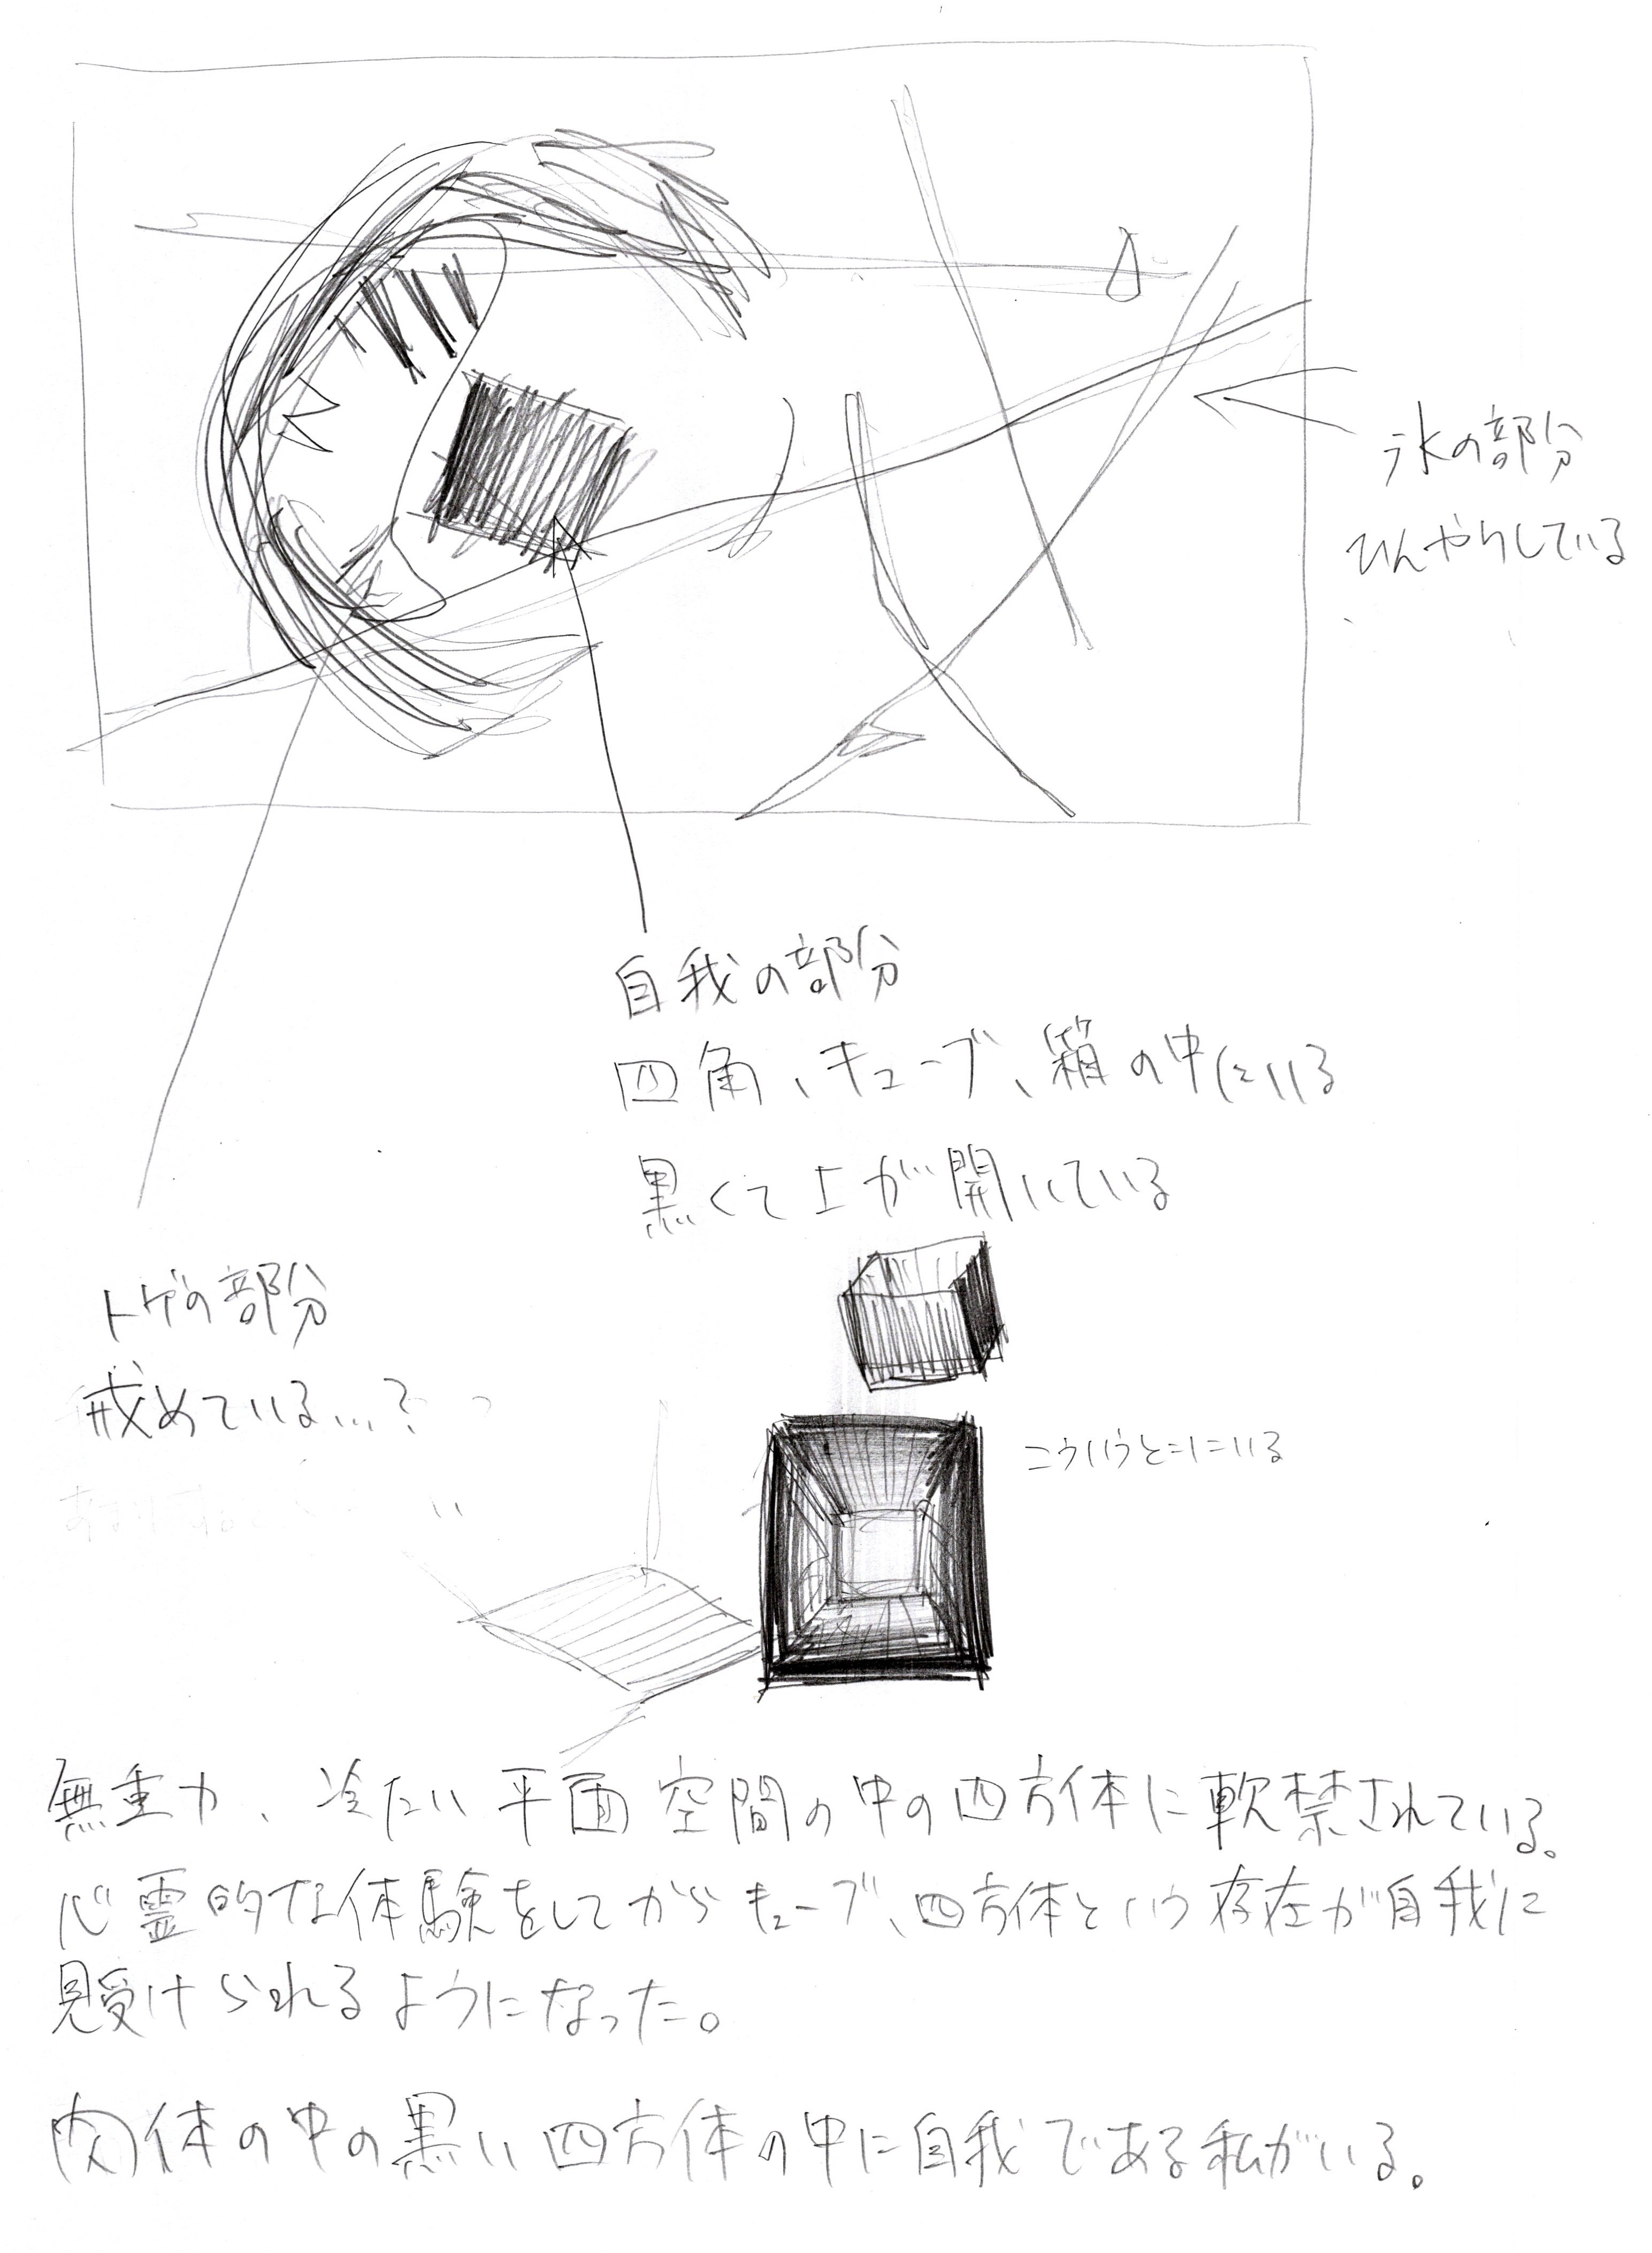 氷の部分
ひんやりしている
自我の部分
四角、キューブ、箱の中にいる
黒くて上が開いている
トゲの部分
戒めている…?
こういうとこにいる
無重力、冷たい平面空間の中の四方体に軟禁されている。
心霊的な体験をしてからキューブ、四方体という存在が自我に
見受けられるようになった。
肉体の中の黒い四方体の中に自我である私がいる。